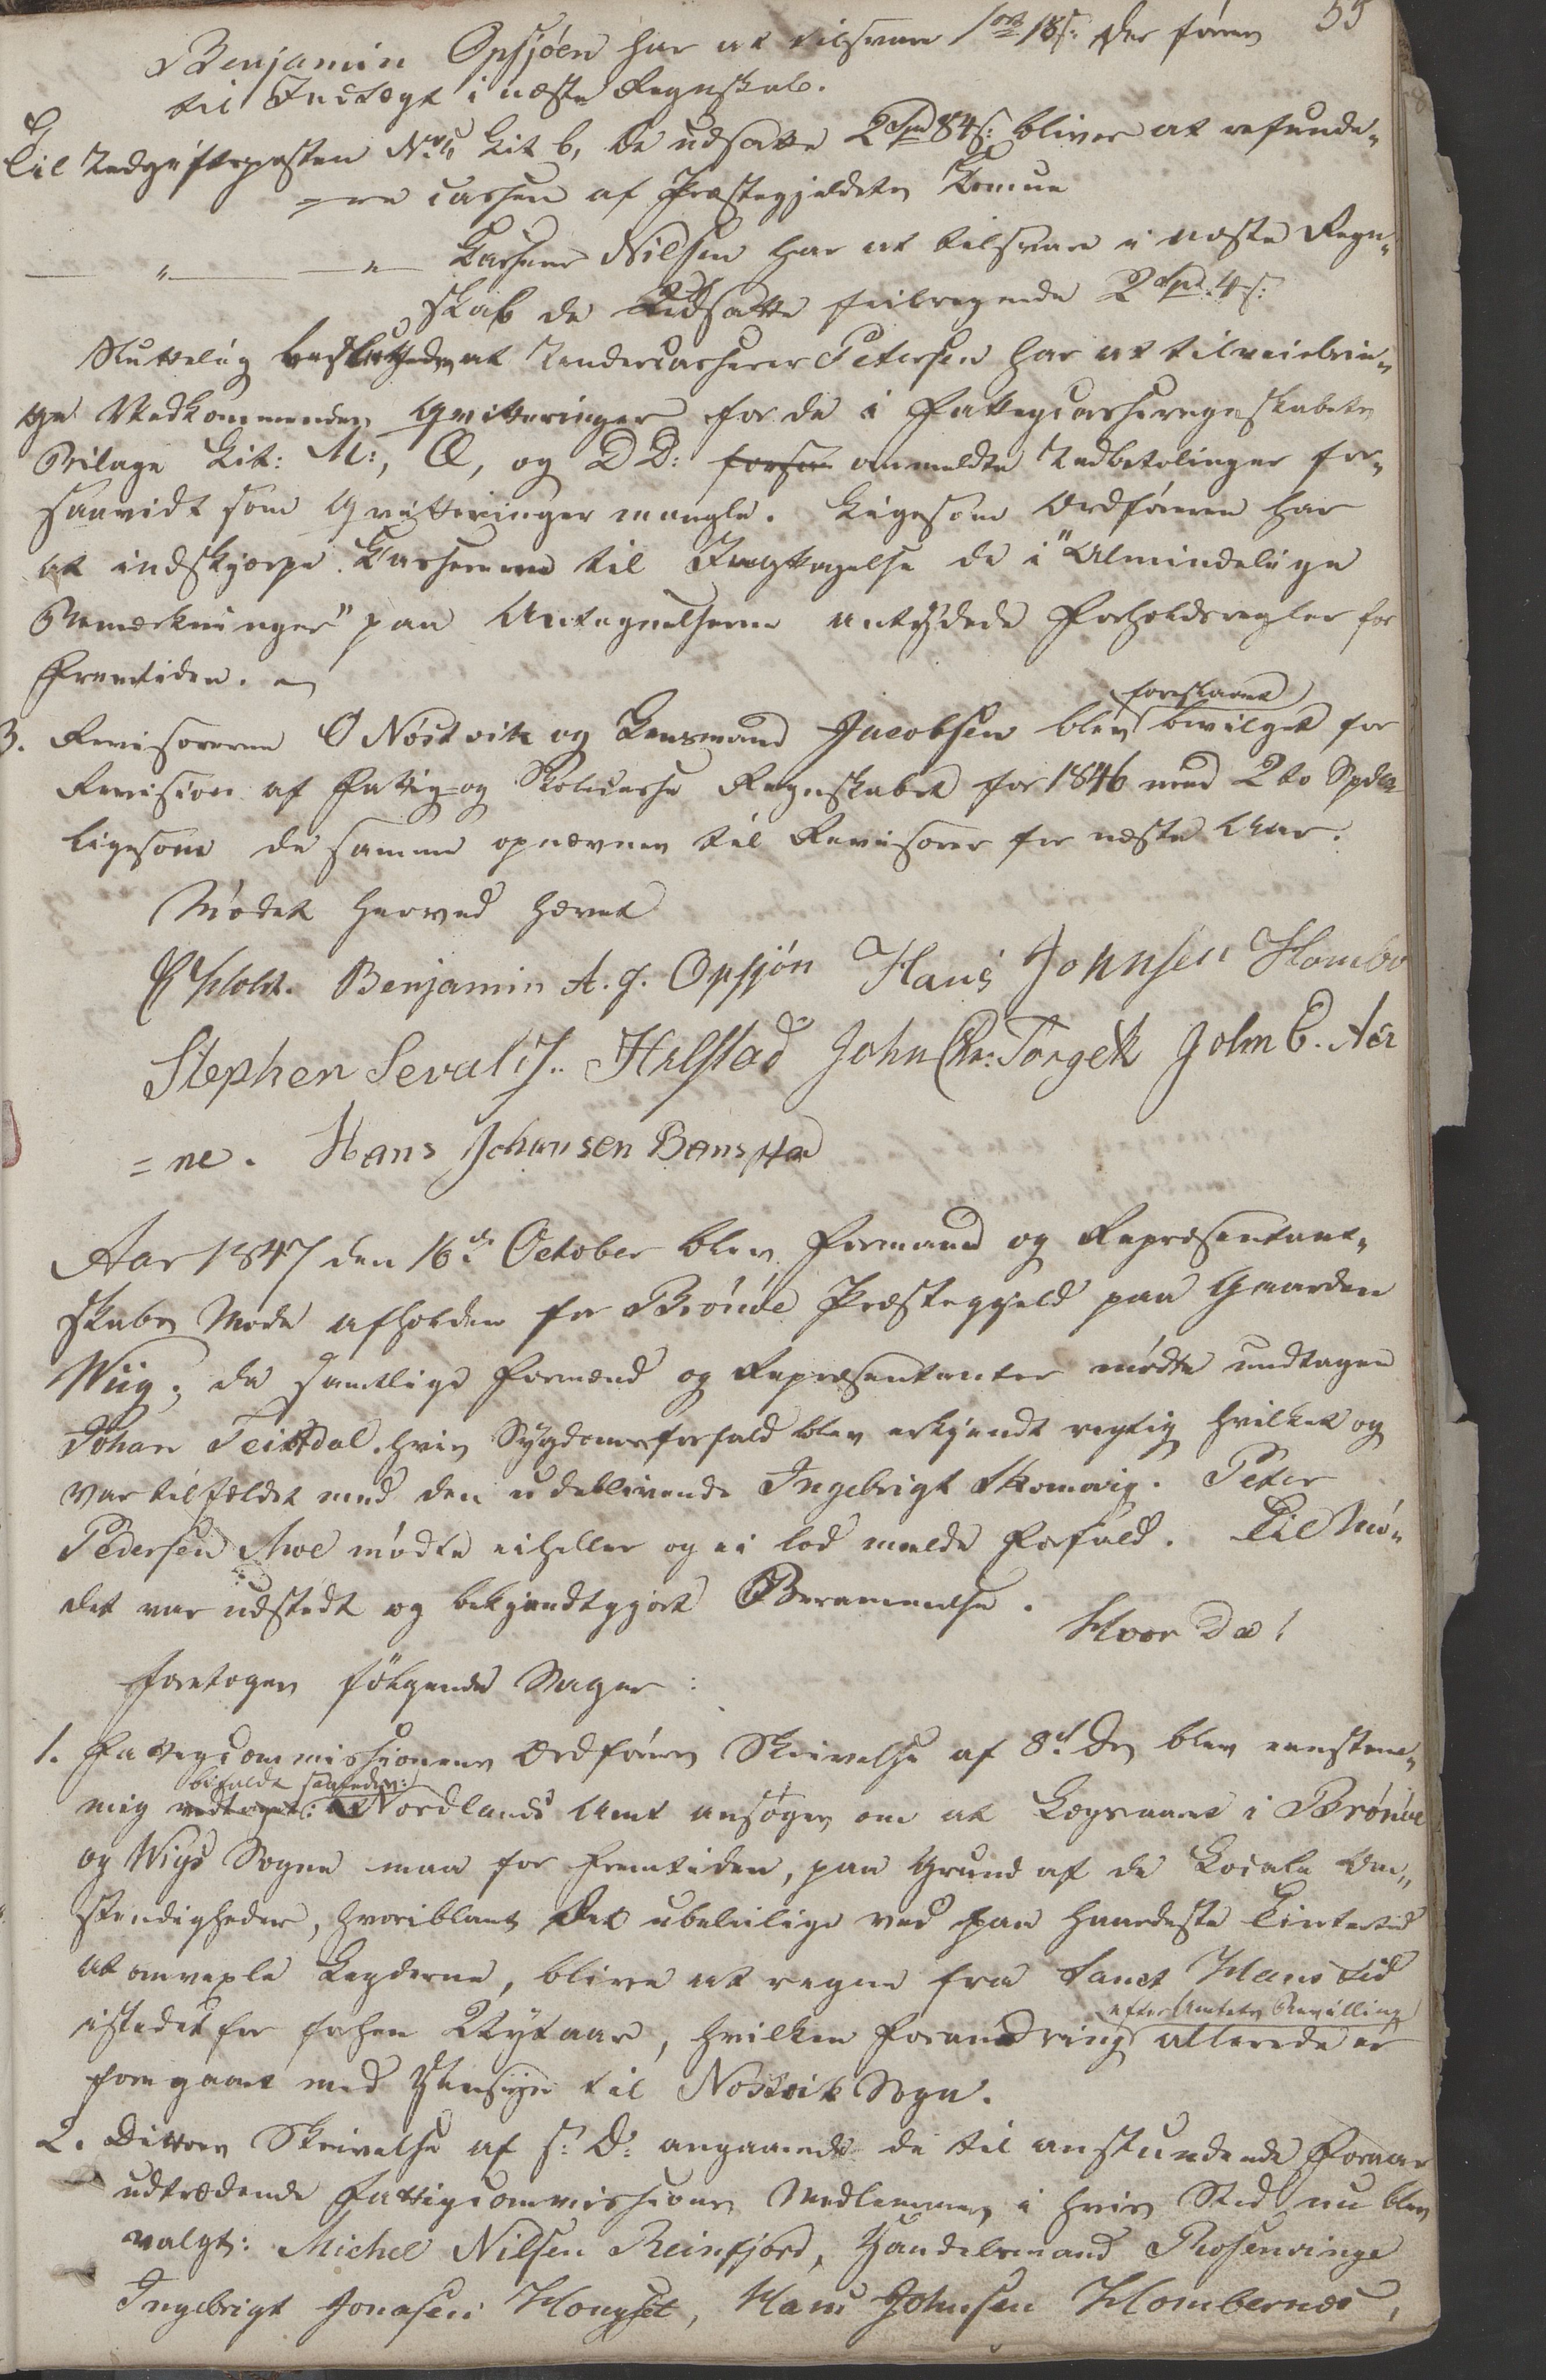 55
Benjamin Opsjøen har at tilsvare 1 ort 18 s: der føres
til Indtægt i næste Regnskab.
Til Udgiftsposten No 4 Lit b, de udsatte 2 Spd 84 s: bliver at refunde-
=re Cassen af Præstegjeldets Komune
— " — " — Casserer Nilsen har at tilsvare i næste Regn-
skab de udsatte feilregnede 2 Spd 4 s:
Sluttelig besluttedes at Undercasserer Petersen har at tilveiebrin-
ge Vedkommendes Qvitteringer for de i Fattigcasseregnskabets
Bilage Lit: M:, Q, og DD: forsaa anmeldte Udbetalinger for-
saavidt som Qvitteringer mangle. Ligesom Ordføreren har
at indskjærpe Kassererne til Iagttagelse de i "Almindelige
Bemærkninger" paa Antegnelserne antydede Forholdsregler for
Fremtiden.
3. Revisorerne O Nøstvik og Lensmand Jacobsen blev foreslaaet bevilget for
Revision af Fattig- og Skolecasse Regnskabet for 1846 med 2 to Spdlr
ligesom de samme opnævnes til Revisorer for næste Aar.
Mødet herved hævet
Holst. Benjamin A. J. Opsjön Hans Johnsen Hombo
Stephen Sevalds. Hilstad John Chr: Torgek John C. Aar
=ne. Hans Johansen Bangstad
Aar 1847 den 16de October blev Formand og Repræsentant-
skabs Møde afholden for Brönöe Præstegjeld paa Gaarden
Wiig; da samtlige Formænd og Repræsentanter mødte undtagen
Johan Teistdal, hvis Sygdomsforfald blev erkjendt rigtig hvilket og
var tilfældet med den udeblivende Ingebrigt Skomvig. Peter
Pedersen Moe mødte eiheller og ei lod melde Forfald. Til Mø-
det var udstedt og bekjendtgjort Berammelse.
Hvor Da!
foretoges følgende Sager:
1. Fattigcommissionens Ordførers Skrivelse af 8d ds blev eenstem-
mig vedtaget: bifaldt saaledes: Nordlands Amt ansøges om at Lægsaaret i Brönöe
og Wigs Sogne maa for Fremtiden, paa Grund af de Locale Om-
stændigheder, hvoriblant det ubeleilige ved paa haardeste Vintertid
at omvexle Lægderne, blive at regne fra Sanct Hans tid
istedetfor forhen Nytaar, hvilken Forandring efter Amtets Bevilling allerede er
foregaaet med Hensyn til Nöstvik Sogn.
2. Dittoes Skrivelse af s: D: angaaende de til anstundende Foraar
udtrædende Fattigcommissions Medlemmer, i hvis Sted nu blev
valgt: Michel Nilsen Reinfjord, Handelsmand Rosenvinge
Ingebrigt Jonasen Hongset, Hans Johnsen Hombernes,